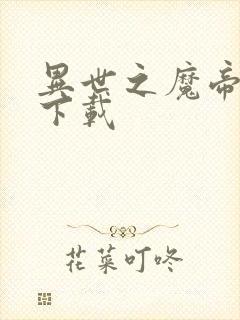 異世之魔帝
下載
花菜叮咚